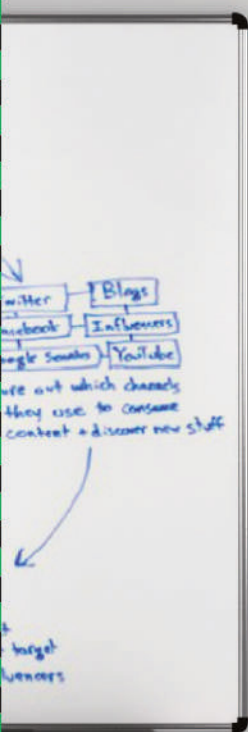 witter Blogs
acebook Influencers
oogle Searches YouTube
ure out which channels
they use to consume
content + discover new stuff
t
target
luencers